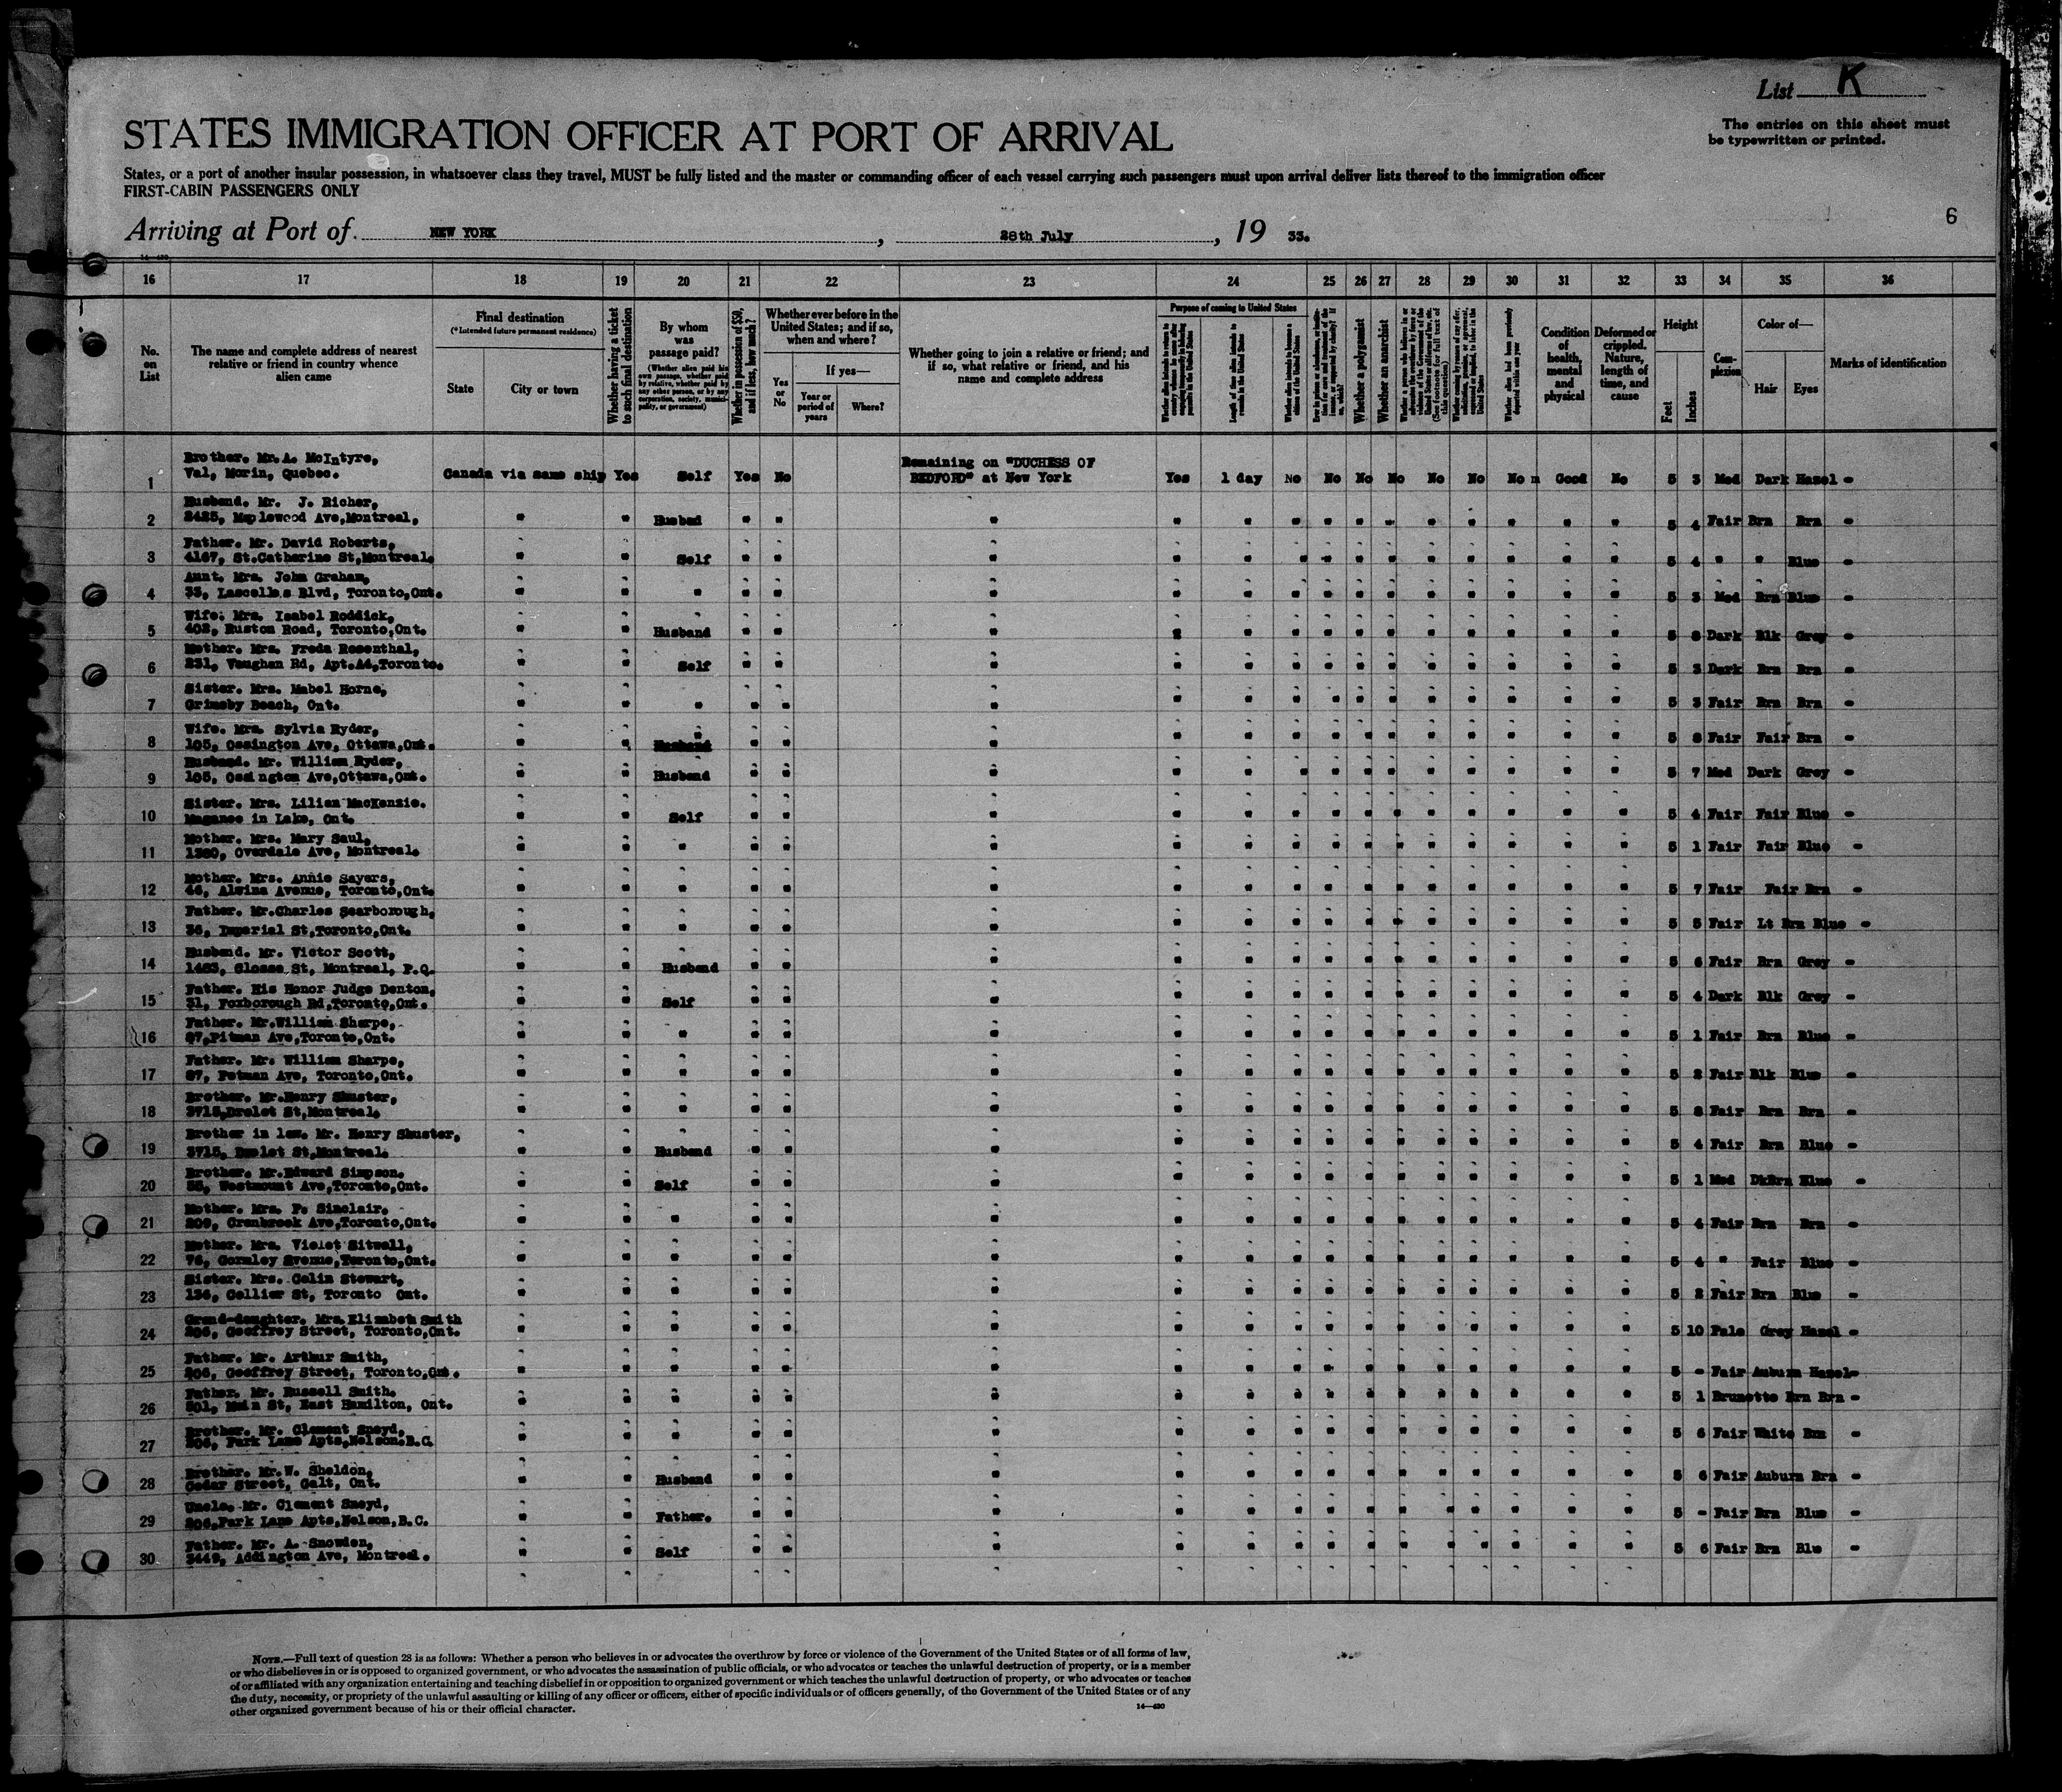 List K
The entries on this sheet must
be typewritten or printed.
STATES IMMIGRATION OFFICER AT PORT OF ARRIVAL
States, or a port of another insular possession, in whatsoever class they travel, MUST be fully listed and the master or commanding officer of each vessel carrying such passengers must upon arrival deliver lists thereof to the immigration officer
FIRST-CABIN PASSENGERS ONLY
6
Arriving at Port of NEW YORK , 28th July , 19 33.
14—430
16 17 18 19 20 21 22 23 24 25 26 27 28 29 30 31 32 33 34 35 36
No. on List
The name and complete address of nearest relative or friend in country whence alien came
Final destination
(*Intended future permanent residence)
State
City or town
Whether having a ticket to such final destination
By whom was passage paid?
(Whether alien paid his own passage, whether paid by relative, whether paid by any other person, or by any corporation, society, municipality, or government)
Whether in possession of $50, and if less, how much?
Whether ever before in the United States; and if so, when and where?
Yes or No
If yes—
Year or period of years
Where?
Whether going to join a relative or friend; and if so, what relative or friend, and his name and complete address
Purpose of coming to United States
Length of time alien intends to remain in the United States
Whether alien intends to become a citizen of the United States
Whether a polygamist
Whether an anarchist
Whether alien had been previously deported within one year
Condition of health, mental and physical
Deformed or crippled. Nature, length of time, and cause
Height
Feet
Inches
Complexion
Color of—
Hair
Eyes
Marks of identification
1 Brother. Mr.A. McIntyre,
Val, Morin, Quebec. Canada via same ship Yes Self Yes No Remaining on "DUCHESS OF
BEDFORD" at New York Yes 1 day No No No No No No No Good No 5 3 Med Dark Hazel -
2 Husband. Mr. J. Richer,
2425, Maplewood Ave,Montreal, " " Husbad " " " 5 4 Fair Brn Brn -
3 Father. Mr. David Roberts,
4167, St.Catherine St,Montreal. " " Self " " " 5 4 " " Blue -
4 Aunt. Mrs. John Graham,
33, Lascelles Blvd, Toronto,Ont. " " " " " " 5 3 Med Brn Blue -
5 Wife. Mrs. Isabel Roddick,
402, Ruston Road, Toronto,Ont. " " Husband " " " 5 8 Dark Blk Grey -
6 Mother. Mrs. Freda Rosenthal,
231, Vaughan Rd, Apt.A4,Toronto. " " Self " " " 5 3 Dark Brn Brn -
7 Sister. Mrs. Mabel Horne,
Grimsby Beach, Ont. " " " " " " 5 3 Fair Brn Brn -
8 Wife. Mrs. Sylvia Ryder,
105, Ossington Ave, Ottawa,Ont. " " " " " " 5 8 Fair Fair Brn -
9 Husband. Mr. William Ryder,
105, Ossington Ave,Ottawa,Ont. " " Husband " " " 5 7 Med Dark Grey -
10 Sister. Mrs. Lilian MacKenzie.
in Lake, Ont. " " Self " " " 5 4 Fair Fair Blue -
11 Mother. Mrs. Mary Saul,
1380, Overdale Ave, Montreal. " " " " " " 5 1 Fair Fair Blue -
12 Mother. Mrs. Annie Sayers,
46, Alvina Avenue, Toronto,Ont. " " " " " " 5 7 Fair Fair Brn -
13 Father. Mr.Charles Scarborough,
36, Imperial St,Toronto,Ont. " " " " " " 5 5 Fair Lt Brn Blue -
14 Husband. Mr. Victor Scott,
1463, Closse St, Montreal, P.Q. " " Husband " " " 5 6 Fair Brn Grey -
15 Father. His Honor Judge Denton,
31, Foxborough Rd,Toronto,Ont. " " Self " " " 5 4 Dark Blk Grey -
16 Father. Mr.William Sharpe,
87,Pitman Ave,Toronto,Ont. " " " " " " 5 1 Fair Brn Blue -
17 Father. Mr. William Sharpe,
87, Petman Ave, Toronto,Ont. " " " " " " 5 2 Fair Blk Blue -
18 Brother. Mr.Henry Shuster,
3715,Drolet St,Montreal. " " " " " " 5 8 Fair Brn Brn -
19 Brother in law. Mr. Henry Shuster,
3715, St,Montreal. " " Husband " " " 5 4 Fair Brn Blue -
20 Brother. Mr.Edward Simpson.
Westmount Ave,Toronto,Ont. " " Self " " " 5 1 Med DkBrn Blue -
21 Mother. Mrs. P. Sinclair.
209, Cranbrook Ave,Toronto,Ont. " " " " " " 5 4 Fair Brn Brn -
22 Mother. Mrs. Violet Sitwell,
76, Gormley Avenue,Toronto,Ont. " " " " " " 5 4 " Fair Blue -
23 Sister. Mrs. Colin Stewart,
136, Collier St, Toronto Ont. " " " " " " 5 2 Fair Brn Blue -
24 Grand-daughter. Mrs.Elizabeth Smith
206, Geoffrey Street, Toronto,Ont. " " " " " " 5 10 Pale Grey Hazel -
25 Father. Mr. Arthur Smith,
206, Geoffrey Street, Toronto,Ont. " " " " " " 5 - Fair Auburn Hazel-
26 Father. Mr. Russell Smith.
501, Main St, East Hamilton, Ont. " " " " " " 5 1 Brunette Brn Brn -
27 Brother. Mr. Clement Sneyd,
206, Park Lane Apts,Nelson.B.C. " " " " " " 5 6 Fair White Brn -
28 Brother. Mr.W. Sheldon,
Cedar Street, Galt, Ont. " " Husband " " " 5 6 Fair Auburn Brn -
29 Uncle. Mr. Clement Sneyd,
206,Park Lane Apts,Nelson,B.C. " " Father. " " " 5 - Fair Brn Blue -
30 Father. Mr. A. Snowden,
3449, Addington Ave, Montreal. " " Self " " " 5 6 Fair Brn Blu -
NOTE.—Full text of question 28 is as follows: Whether a person who believes in or advocates the overthrow by force or violence of the Government of the United States or of all forms of law,
or who disbelieves in or is opposed to organized government, or who advocates the assassination of public officials, or who advocates or teaches the unlawful destruction of property, or is a member
of or affiliated with any organization entertaining and teaching disbelief in or opposition to organized government or which teaches the unlawful destruction of property, or who advocates or teaches
the duty, necessity, or propriety of the unlawful assaulting or killing of any officer or officers, either of specific individuals or of officers generally, of the Government of the United States or of any
other organized government because of his or their official character.
14—430